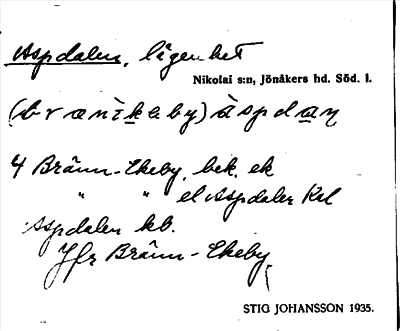 Aspdalen, lägenhet
Nikolai s:n, Jönåkers hd. Söd. l.
(brænìkeby) àspdaɳ
4 Bränn-Ekeby, bek. ek
" " el Aspdalen Krl
Aspdalen kb.
Jfr Bränn-Ekeby
STIG JOHANSSON 1935.